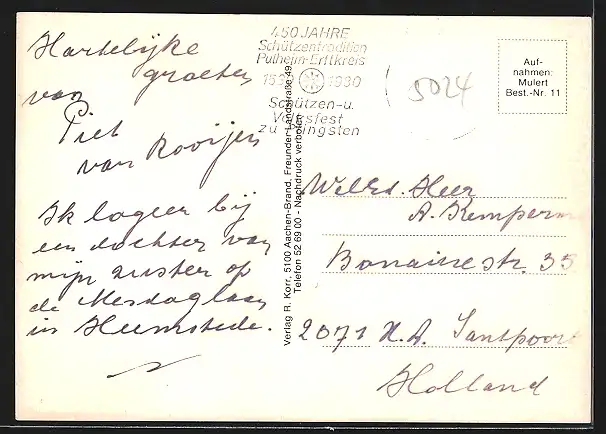 Hartelijke
groeten
van
Piet
van Rooijen
Ik logeer bij
een dochter van
mijn zuster op
de Mesdaglaan
in Heemstede.
450 JAHRE
Schützentradition
Pulheim-Erftkreis
1980
Schützen-u.
Volksfest
zu Pfingsten
5024
Auf-
nahmen:
Mulert
Best.-Nr. 11
Verlag R. Korr, 5100 Aachen-Brand, Freunder Landstraße 49
Telefon 52 69 00 - Nachdruck verboten
Weled. Heer
A. Kemperm
Bonairestr. 35
2071 X.A. Santpoort
Holland